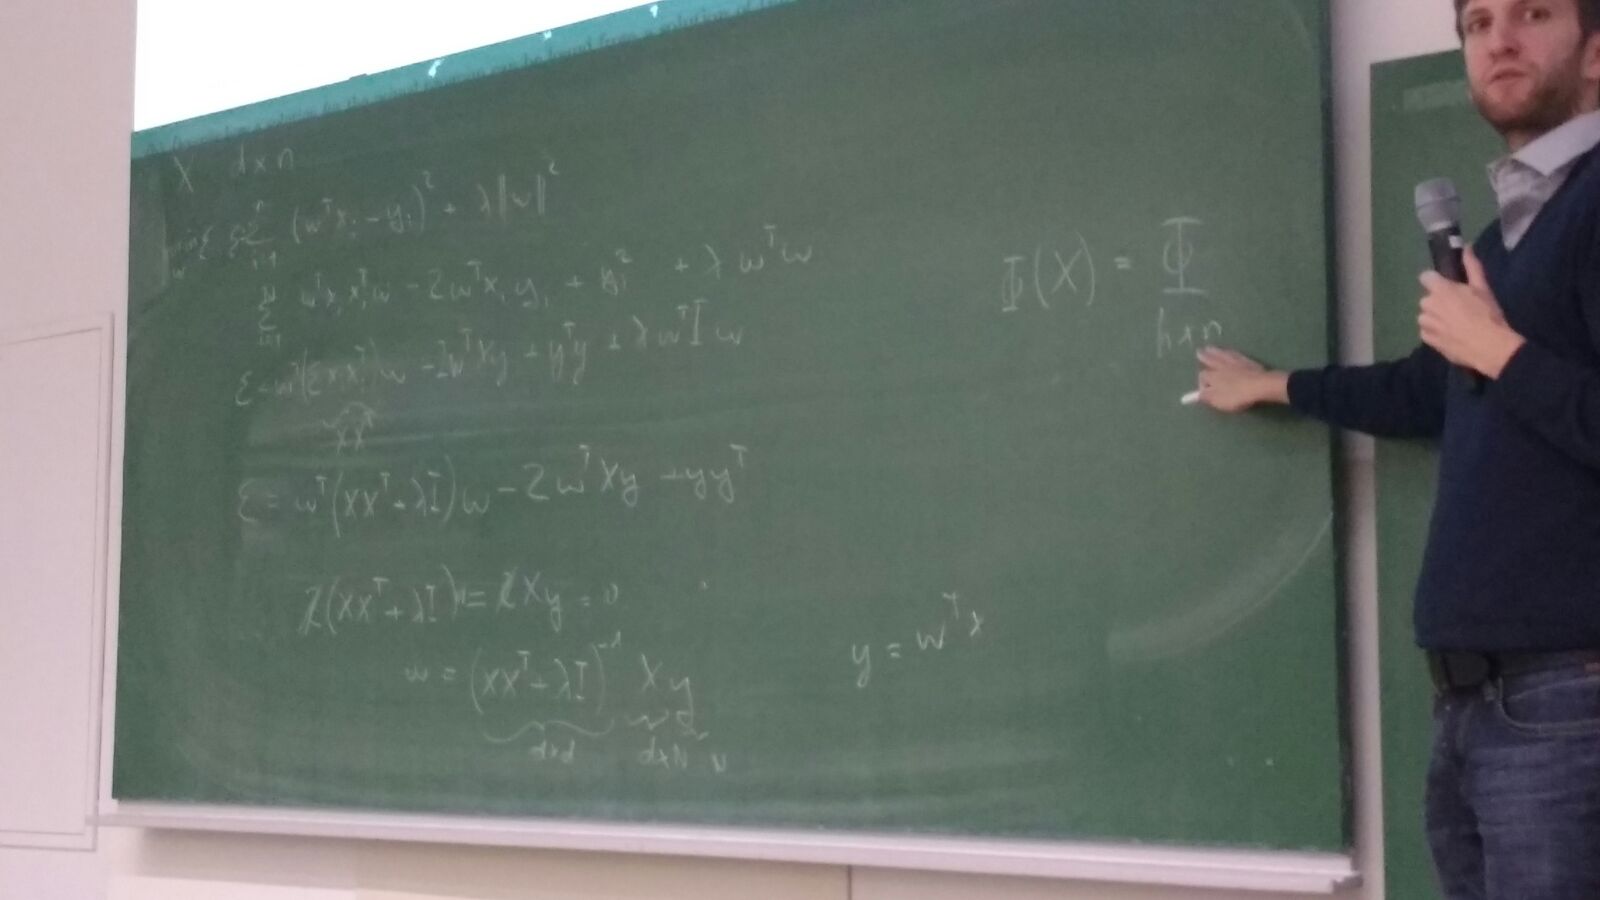 X d×n
min_w ε Σ_{i=1}^{n} (wᵀxᵢ - yᵢ)² + λ‖w‖²
Σ_{i=1}^{n} wᵀxᵢxᵢᵀw - 2wᵀxᵢyᵢ + yᵢ² + λwᵀw
ε = wᵀ(Σxᵢxᵢᵀ)w - 2wᵀXy + yᵀy + λwᵀIw
XXᵀ
ε = wᵀ(XXᵀ + λI)w - 2wᵀXy + yyᵀ
2(XXᵀ + λI)w = 2Xy = 0
w = (XXᵀ + λI)⁻¹ Xy
d×d d×N N
Φ(X) = Φ
h×n
y = wᵀx